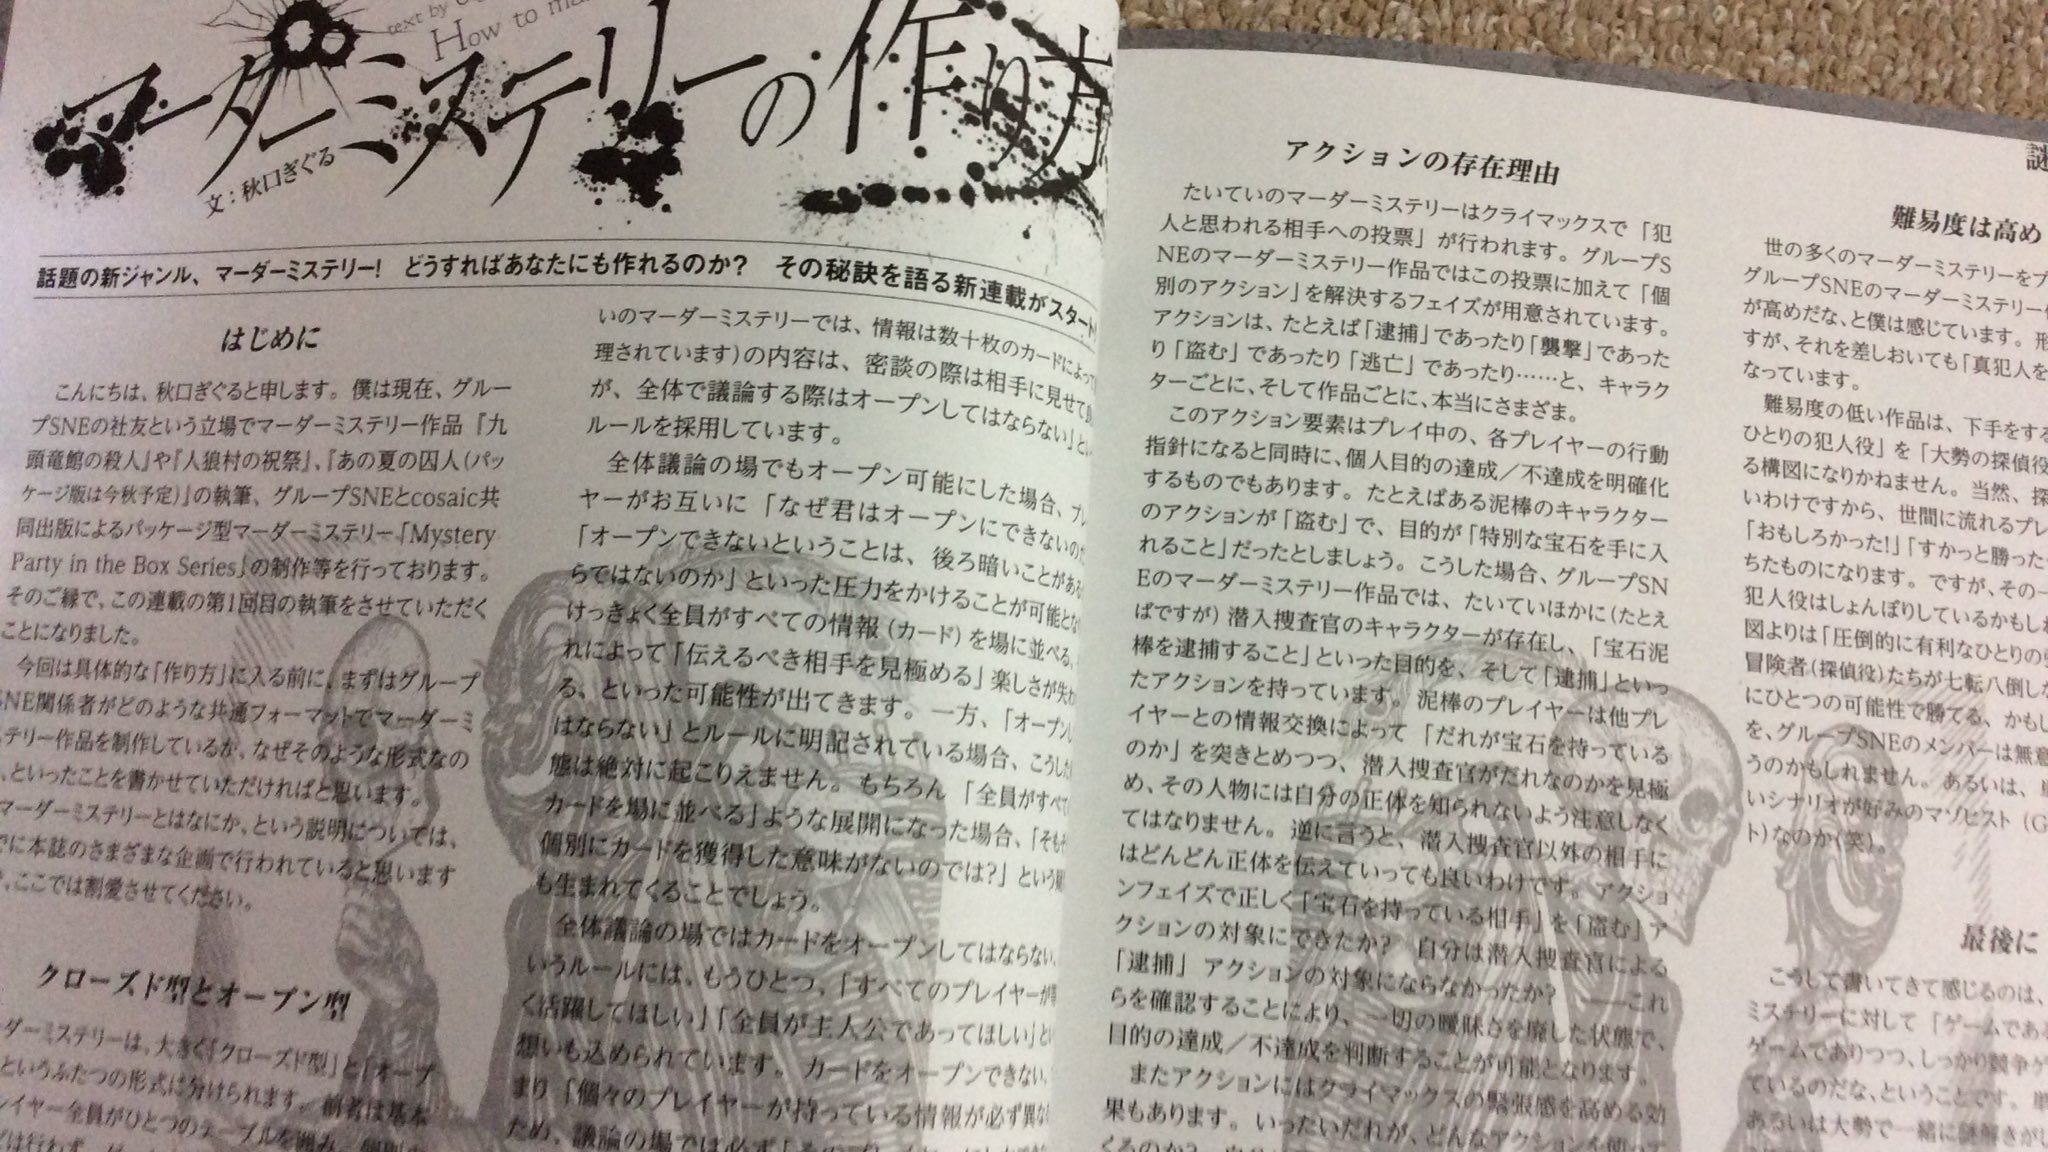 text by
How to ma
マーダーミステリーの作り方
文：秋口ぎぐる
話題の新ジャンル、マーダーミステリー!　どうすればあなたにも作れるのか?　その秘訣を語る新連載がスタート!
はじめに
こんにちは、秋口ぎぐると申します。僕は現在、グルー
プSNEの社友という立場でマーダーミステリー作品『九
頭竜館の殺人』や『人狼村の祝祭』、『あの夏の囚人(パッ
ケージ版は今秋予定)』の執筆、グループSNEとcosaic共
同出版によるパッケージ型マーダーミステリー「Mystery
Party in the Box Series」の制作等を行っております。
そのご縁で、この連載の第1回目の執筆をさせていただく
ことになりました。
今回は具体的な「作り方」に入る前に、まずはグループ
SNE関係者がどのような共通フォーマットでマーダーミ
ステリー作品を制作しているか、なぜそのような形式なの
、といったことを書かせていただければと思います。
マーダーミステリーとはなにか、という説明については、
でに本誌のさまざまな企画で行われていると思います
、ここでは割愛させてください。
クローズド型とオープン型
ーダーミステリーは、大きく「クローズド型」と「オープ
というふたつの形式に分けられます。前者は基本
レイヤー全員がひとつのテーブルを囲み、個別
いのマーダーミステリーでは、情報は数十枚のカードによって
理されています)の内容は、密談の際は相手に見せて
が、全体で議論する際はオープンしてはならない」とい
ルールを採用しています。
全体議論の場でもオープン可能にした場合、プレ
ヤーがお互いに「なぜ君はオープンにできないのか
「オープンできないということは、後ろ暗いことがあるか
らではないのか」といった圧力をかけることが可能とな
けっきょく全員がすべての情報(カード)を場に並べる、
れによって「伝えるべき相手を見極める」楽しさが失わ
る、といった可能性が出てきます。一方、「オープンし
はならない」とルールに明記されている場合、こうした
態は絶対に起こりえません。もちろん「全員がすべて
カードを場に並べる」ような展開になった場合、「そもそ
個別にカードを獲得した意味がないのでは?」という
も生まれてくることでしょう。
全体議論の場ではカードをオープンしてはならない、
いうルールには、もうひとつ、「すべてのプレイヤーが
く活躍してほしい」「全員が主人公であってほしい」と
想いも込められています。カードをオープンできない、
まり「個々のプレイヤーが持っている情報が必ず異な
ため、議論の場では必ず
アクションの存在理由
たいていのマーダーミステリーはクライマックスで「犯
人と思われる相手への投票」が行われます。グループS
NEのマーダーミステリー作品ではこの投票に加えて「個
別のアクション」を解決するフェイズが用意されています。
アクションは、たとえば「逮捕」であったり「襲撃」であった
り「盗む」であったり「逃亡」であったり……と、キャラク
ターごとに、そして作品ごとに、本当にさまざま。
このアクション要素はプレイ中の、各プレイヤーの行動
指針になると同時に、個人目的の達成／不達成を明確化
するものでもあります。たとえばある泥棒のキャラクター
のアクションが「盗む」で、目的が「特別な宝石を手に入
れること」だったとしましょう。こうした場合、グループSN
Eのマーダーミステリー作品では、たいていほかに(たとえ
ばですが)潜入捜査官のキャラクターが存在し、「宝石泥
棒を逮捕すること」といった目的を、そして「逮捕」といっ
たアクションを持っています。泥棒のプレイヤーは他プレ
イヤーとの情報交換によって「だれが宝石を持っている
のか」を突きとめつつ、潜入捜査官がだれなのかを見極
め、その人物には自分の正体を知られないよう注意しなく
てはなりません。逆に言うと、潜入捜査官以外の相手に
はどんどん正体を伝えていっても良いわけです。アクショ
ンフェイズで正しく「宝石を持っている相手」を「盗む」ア
クションの対象にできたか?　自分は潜入捜査官による
「逮捕」アクションの対象にならなかったか?　――これ
らを確認することにより、一切の曖昧さを廃した状態で、
目的の達成／不達成を判断することが可能となります。
またアクションにはクライマックスの緊張感を高める効
果もあります。いったいだれが、どんなアクションを使って
くるのか?
謎
難易度は高め
世の多くのマーダーミステリーをプ
グループSNEのマーダーミステリー
が高めだな、と僕は感じています。形
すが、それを差しおいても「真犯人を
なっています。
難易度の低い作品は、下手をする
ひとりの犯人役」を「大勢の探偵役
る構図になりかねません。当然、探
いわけですから、世間に流れるプレ
「おもしろかった!」「すかっと勝った
ちたものになります。ですが、その一
犯人役はしょんぼりしているかもしれ
図よりは「圧倒的に有利なひとりの
冒険者(探偵役)たちが七転八倒しな
にひとつの可能性で勝てる、かもし
を、グループSNEのメンバーは無意
うのかもしれません。あるいは、単
いシナリオが好みのマゾヒスト(G
ト)なのか(笑)。
最後に
こうして書いてきて感じるのは、
ミステリーに対して「ゲームである
ゲームでありつつ、しっかり競争ゲ
ているのだな、ということです。単
あるいは大勢で一緒に謎解きがし